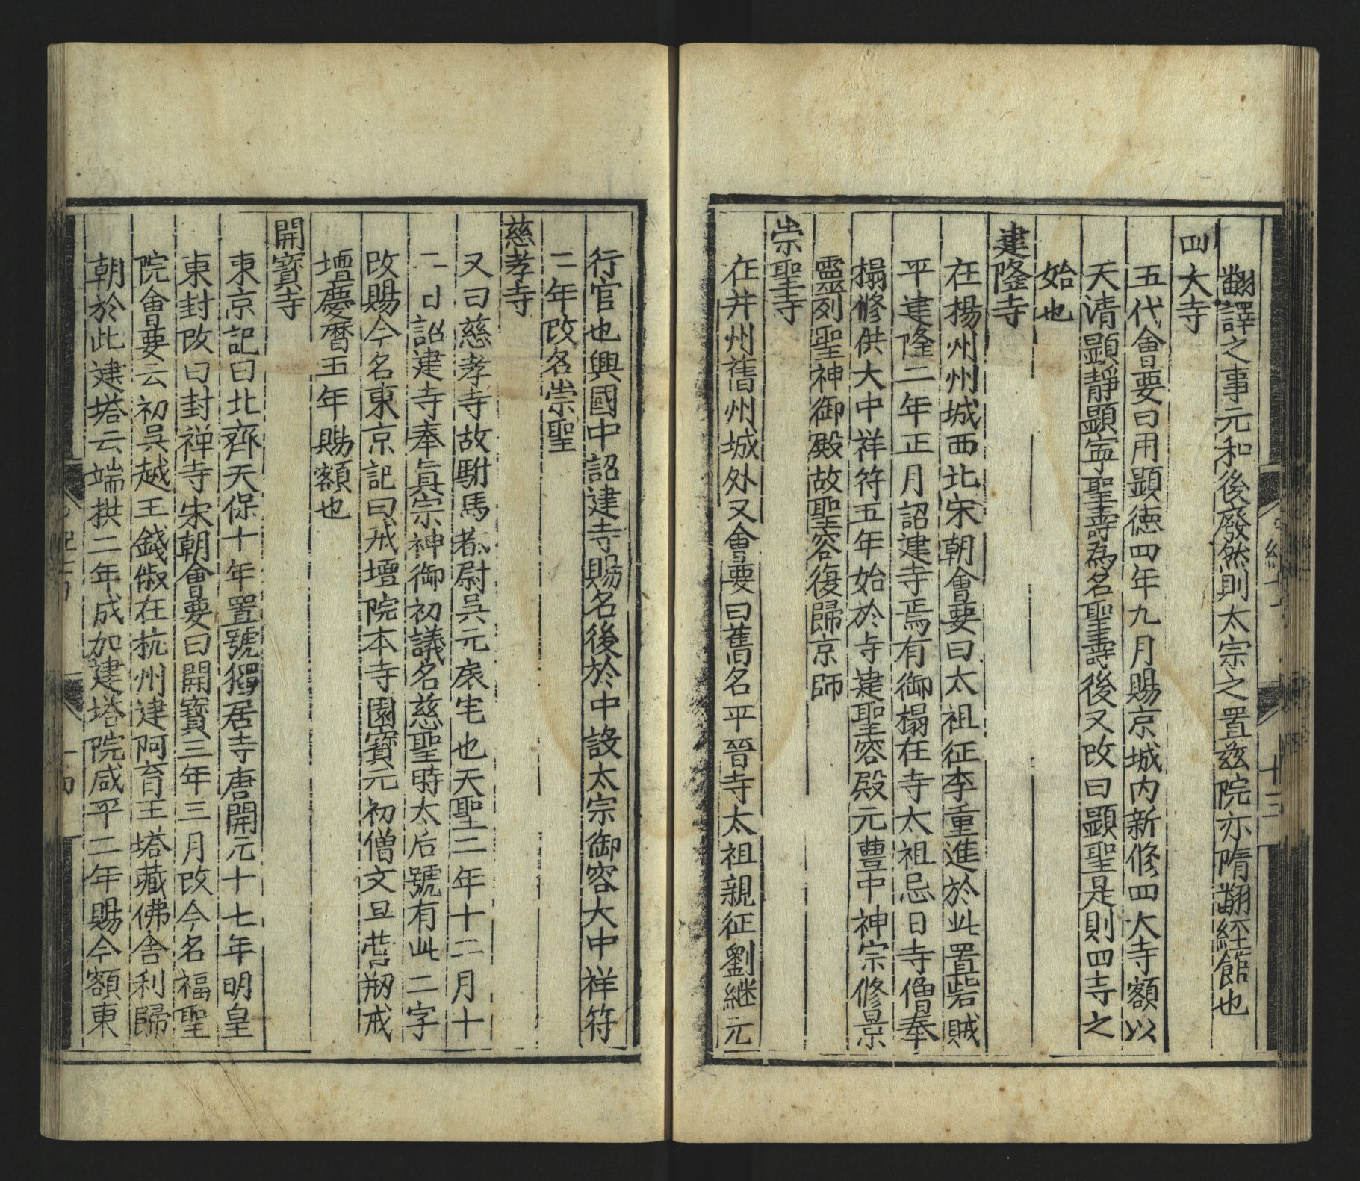 翻譯之事元和後廢然則太宗之置兹院亦隋翻經館也
四大寺
五代會要曰用顯德四年九月賜京城内新修四大寺額以
天清顯靜顯寧聖壽為名聖壽後又改曰顯聖是則四寺之
始也
建隆寺
在楊州州城西北宋朝會要曰太祖征李重進於此置砦賊
平建隆二年正月詔建寺焉有御榻在寺太祖忌日寺僧奉
榻修供大中祥符五年始於寺建聖容殿元豊中神宗修景
靈列聖神御殿故聖容復歸京師
崇聖寺
在并州舊州城外又會要曰舊名平晉寺太祖親征劉継元
行官也興國中詔建寺賜名後於中設太宗御容大中祥符
二年改名崇聖
慈孝寺
又曰慈孝寺故駙馬都尉吳元扆宅也天聖二年十二月十
二日詔建寺奉真宗神御初議名慈聖時太后號有此二字
改賜今名東京記曰戒壇院本寺園寶元初僧文旦営剏戒
壇慶曆五年賜額也
開寶寺
東京記曰北齊天保十年置號獨居寺唐開元十七年明皇
東封改曰封禅寺宋朝會要曰開寶三年三月改今名福聖
院會要云初吳越王錢俶在杭州建阿育王塔藏佛舎利歸
朝於此建塔云端拱二年成加建塔院咸平二年賜今額東